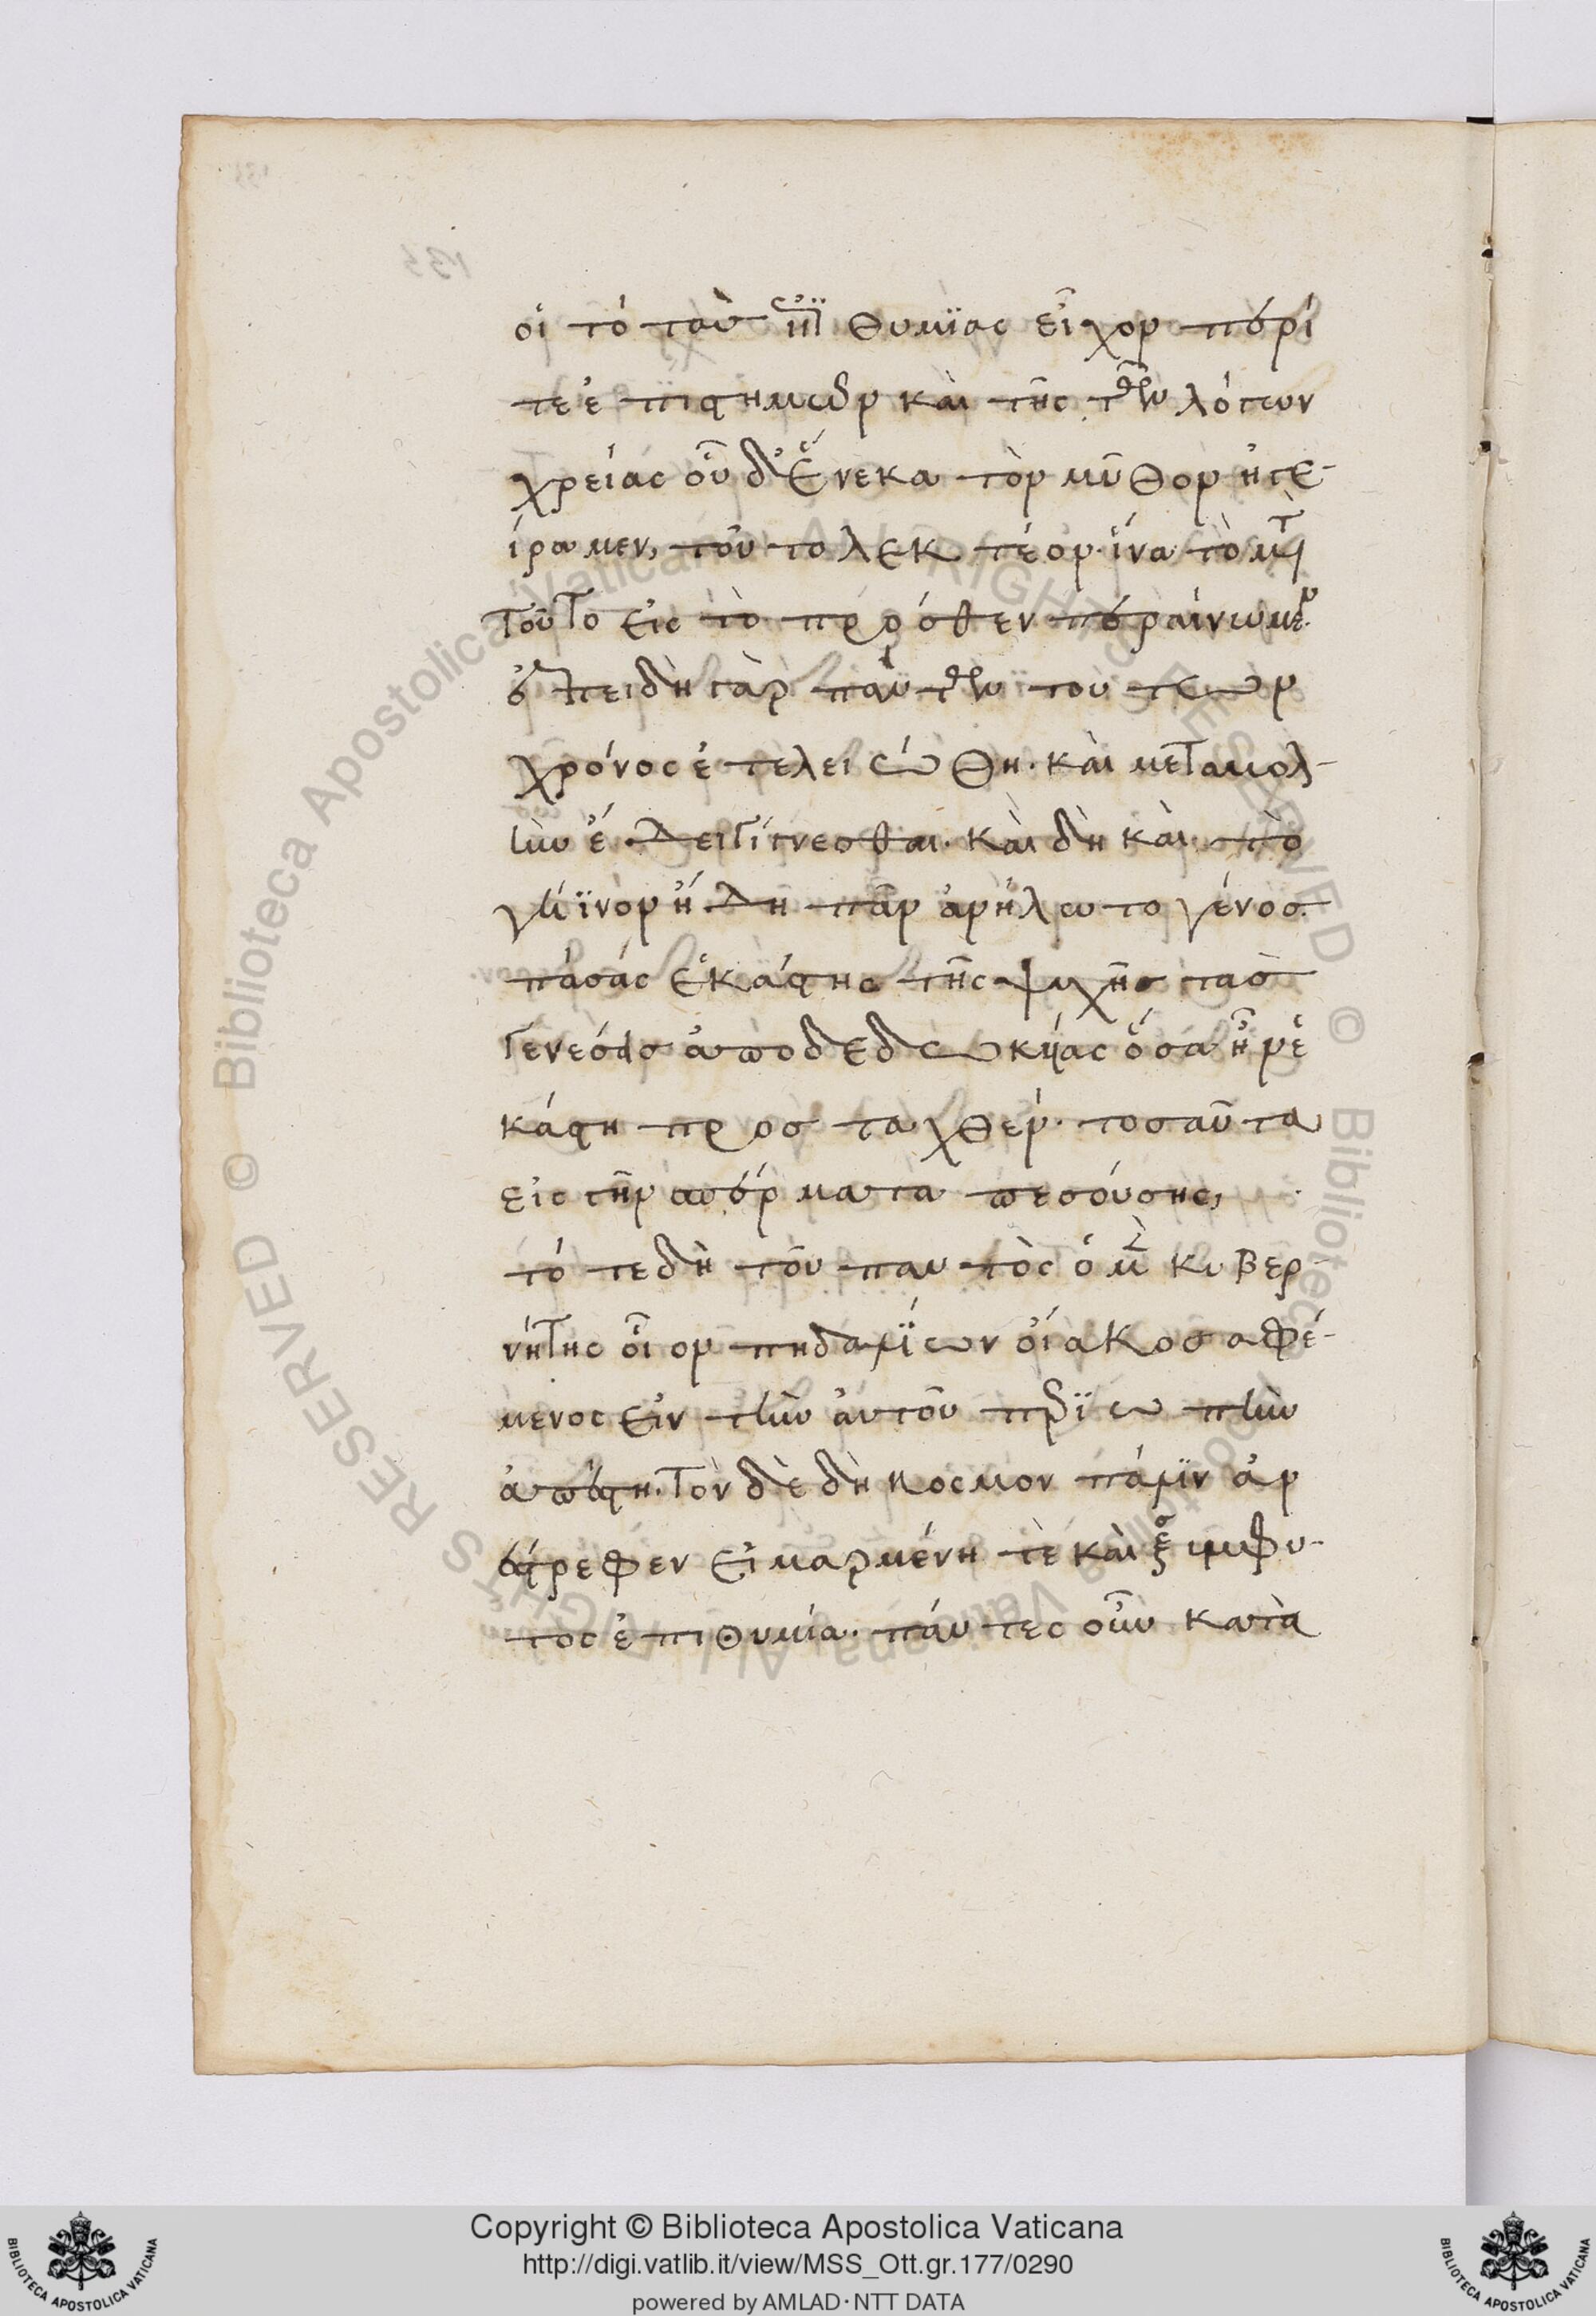 οἱ τότε τὰς ἐπιθυμίας εἶχον περί
τε ἐπιστημῶν καὶ τῆς τῶν λόγων
χρείας οὗ δ' ἕνεκα τὸν μῦθον ἠγε-
ίραμεν, τοῦτο λεκτέον· ἵνα τὸ μετὰ
τοῦτο εἰς τὸ πρόσθεν περαίνωμεν.
ἐπειδὴ γὰρ πάντων τούτων
χρόνος ἐτελειώθη· καὶ μεταβολ-
ὴν ἔδει γίγνεσθαι· καὶ δὴ καὶ τὸ
γήϊνον ἤδη πᾶν ἀνήλωτο γένος·
πάσας ἑκάστης τῆς ψυχῆς τὰς
γενέσεις ἀποδεδωκυίας ὅσα ἦν ἑ
κάστη προσταχθέν· τοσαῦτα
εἰς γῆν σπέρματα πεσούσης,
τότε δὴ τοῦ παντὸς ὁ μὲν κυβερ-
νήτης οἷον πηδαλίων οἴακος ἀφέ-
μενος εἰς τὴν αὐτοῦ περιωπὴν
ἀπέστη. τὸν δὲ δὴ κόσμον πάλιν ἀν
έστρεφεν εἱμαρμένη τε καὶ ξύμφυ-
τος ἐπιθυμία. πάντες οὖν κατὰ
Copyright © Biblioteca Apostolica Vaticana
http://digi.vatlib.it/view/MSS_Ott.gr.177/0290
powered by AMLAD·NTT DATA